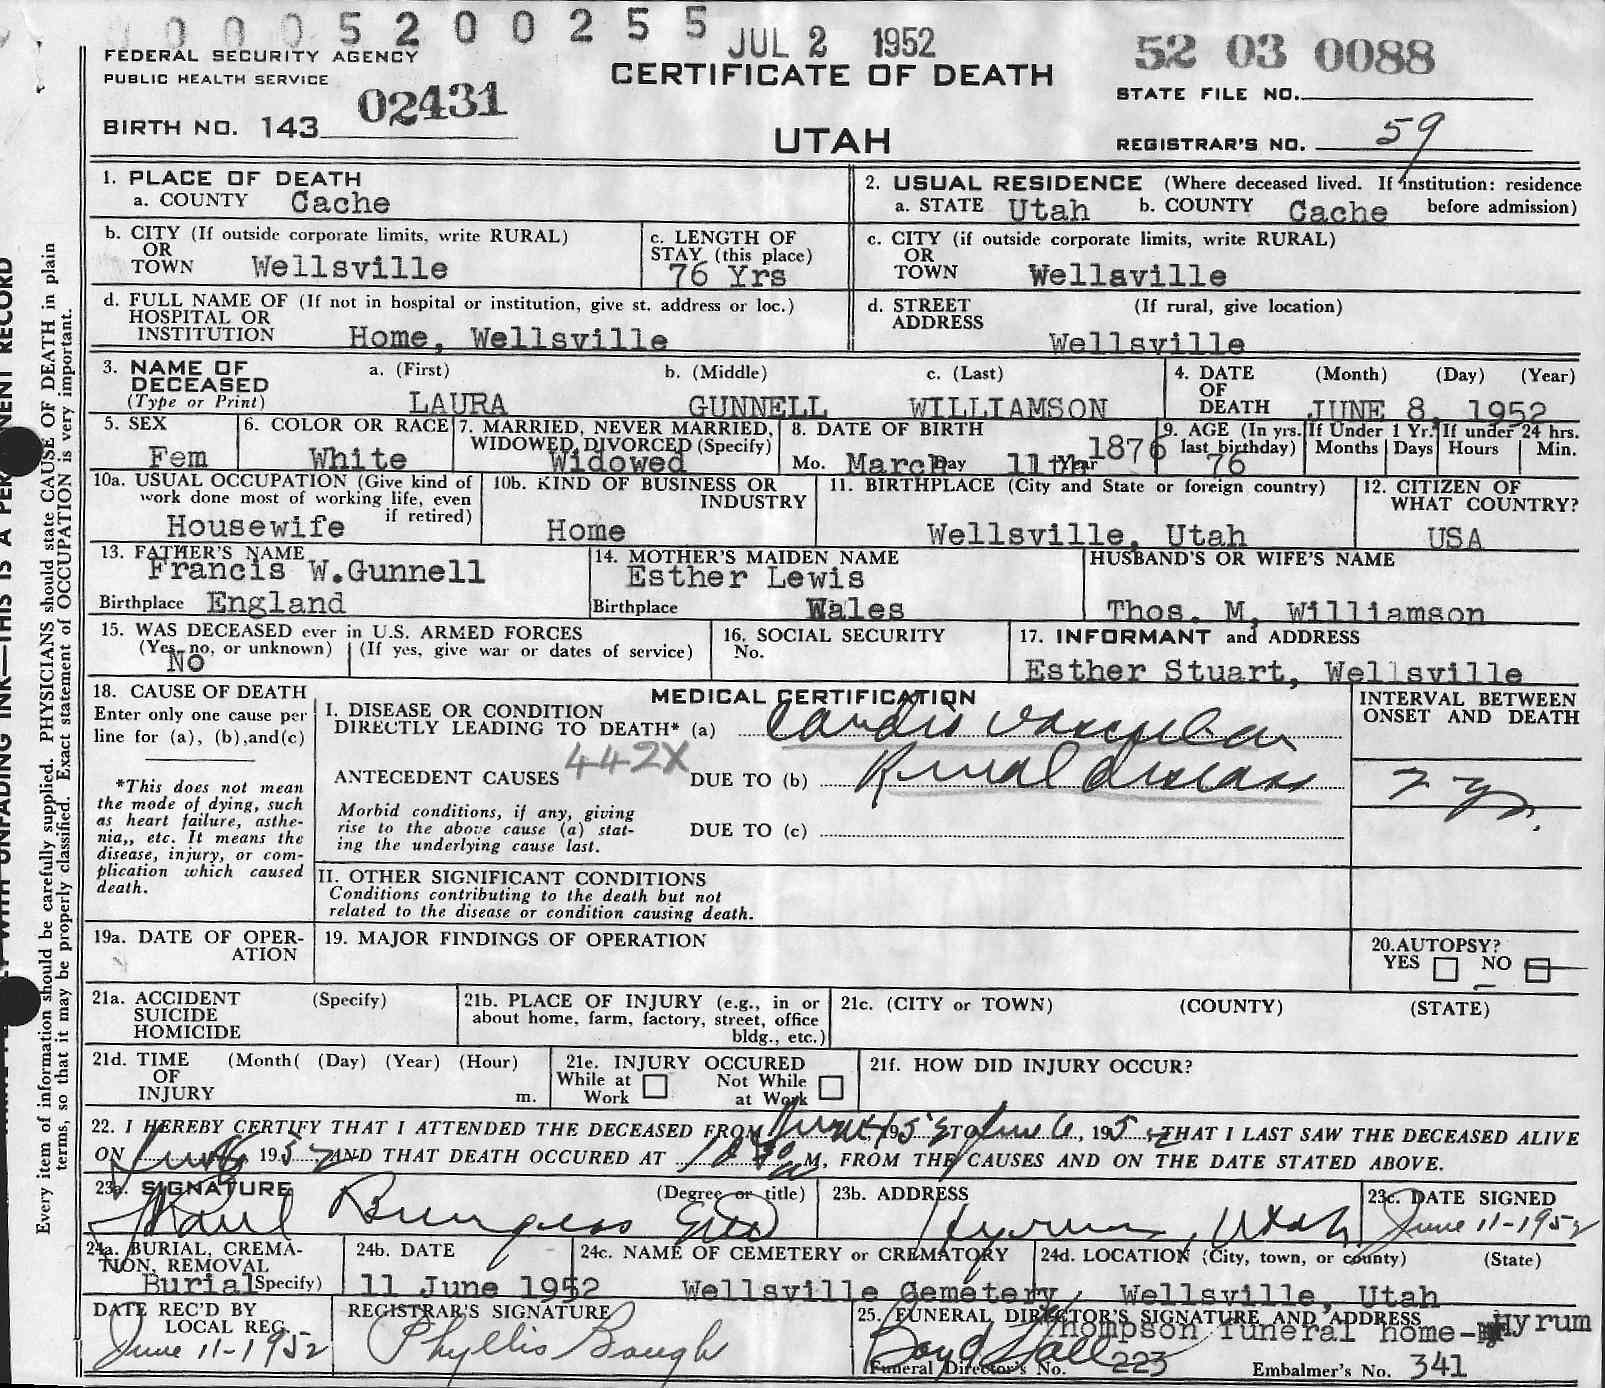 0 0 0 5 2 0 0 2 5 5 JUL 2 1952 52 03 0088
FEDERAL SECURITY AGENCY
PUBLIC HEALTH SERVICE
CERTIFICATE OF DEATH
STATE FILE NO.
BIRTH NO. 143 02431
UTAH
REGISTRAR'S NO. 59
1. PLACE OF DEATH
a. COUNTY Cache
2. USUAL RESIDENCE (Where deceased lived. If institution: residence
a. STATE Utah b. COUNTY Cache before admission)
b. CITY (If outside corporate limits, write RURAL)
OR
TOWN Wellsville
c. LENGTH OF
STAY (this place)
76 Yrs
c. CITY (if outside corporate limits, write RURAL)
OR
TOWN Wellaville
d. FULL NAME OF (If not in hospital or institution, give st. address or loc.)
HOSPITAL OR
INSTITUTION Home, Wellsville
d. STREET (If rural, give location)
ADDRESS
Wellsville
3. NAME OF a. (First) b. (Middle) c. (Last)
DECEASED
(Type or Print) LAURA GUNNELL WILLIAMSON
4. DATE (Month) (Day) (Year)
OF
DEATH JUNE 8, 1952
5. SEX
Fem
6. COLOR OR RACE
White
7. MARRIED, NEVER MARRIED,
WIDOWED, DIVORCED (Specify)
Widowed
8. DATE OF BIRTH
Mo. March Day 11th Year 1876
9. AGE (In yrs.
last birthday)
76
If Under 1 Yr.
Months Days
If under 24 hrs.
Hours Min.
10a. USUAL OCCUPATION (Give kind of
work done most of working life, even
if retired)
Housewife
10b. KIND OF BUSINESS OR
INDUSTRY
Home
11. BIRTHPLACE (City and State or foreign country)
Wellsville, Utah
12. CITIZEN OF
WHAT COUNTRY?
USA
13. FATHER'S NAME
Francis W.Gunnell
Birthplace England
14. MOTHER'S MAIDEN NAME
Esther Lewis
Birthplace Wales
HUSBAND'S OR WIFE'S NAME
Thos. M. Williamson
15. WAS DECEASED ever in U.S. ARMED FORCES
(Yes, no, or unknown) (If yes, give war or dates of service)
No
16. SOCIAL SECURITY
No.
17. INFORMANT and ADDRESS
Esther Stuart, Wellsville
18. CAUSE OF DEATH
Enter only one cause per
line for (a), (b),and(c)
*This does not mean
the mode of dying, such
as heart failure, asthe-
nia,, etc. It means the
disease, injury, or com-
plication which caused
death.
MEDICAL CERTIFICATION
I. DISEASE OR CONDITION
DIRECTLY LEADING TO DEATH* (a) Cardio Vascular
442X
ANTECEDENT CAUSES DUE TO (b) Renal disease
Morbid conditions, if any, giving
rise to the above cause (a) stat-
ing the underlying cause last.
DUE TO (c)
INTERVAL BETWEEN
ONSET AND DEATH
2 yrs.
II. OTHER SIGNIFICANT CONDITIONS
Conditions contributing to the death but not
related to the disease or condition causing death.
19a. DATE OF OPER-
ATION
19. MAJOR FINDINGS OF OPERATION
20.AUTOPSY?
YES NO
21a. ACCIDENT (Specify)
SUICIDE
HOMICIDE
21b. PLACE OF INJURY (e.g., in or
about home, farm, factory, street, office
bldg., etc.)
21c. (CITY or TOWN) (COUNTY) (STATE)
21d. TIME (Month( (Day) (Year) (Hour)
OF
INJURY m.
21e. INJURY OCCURED
While at Not While
Work at Work
21f. HOW DID INJURY OCCUR?
22. I HEREBY CERTIFY THAT I ATTENDED THE DECEASED FROM 1952 TO June 6, 1952, THAT I LAST SAW THE DECEASED ALIVE
ON June 6 1952 AND THAT DEATH OCCURED AT M, FROM THE CAUSES AND ON THE DATE STATED ABOVE.
23a. SIGNATURE (Degree or title)
Burgess
23b. ADDRESS
Hyrum, Utah
23c. DATE SIGNED
June 11-1952
24a. BURIAL, CREMA-
TION, REMOVAL
Burial Specify)
24b. DATE
11 June 1952
24c. NAME OF CEMETERY or CREMATORY
Wellsville Cemetery,
24d. LOCATION (City, town, or county) (State)
Wellsville, Utah
DATE REC'D BY
LOCAL REG.
June 11-1952
REGISTRAR'S SIGNATURE
Phyllis Baugh
25. FUNERAL DIRECTOR'S SIGNATURE AND ADDRESS
Thompson funeral home- Hyrum
Boyd Hall
Funeral Director's No. 223 Embalmer's No. 341
Every item of information should be carefully supplied. PHYSICIANS should state CAUSE OF DEATH in plain
terms, so that it may be properly classified. Exact statement of OCCUPATION is very important.
WITH UNFADING INK—THIS IS A PERMANENT RECORD